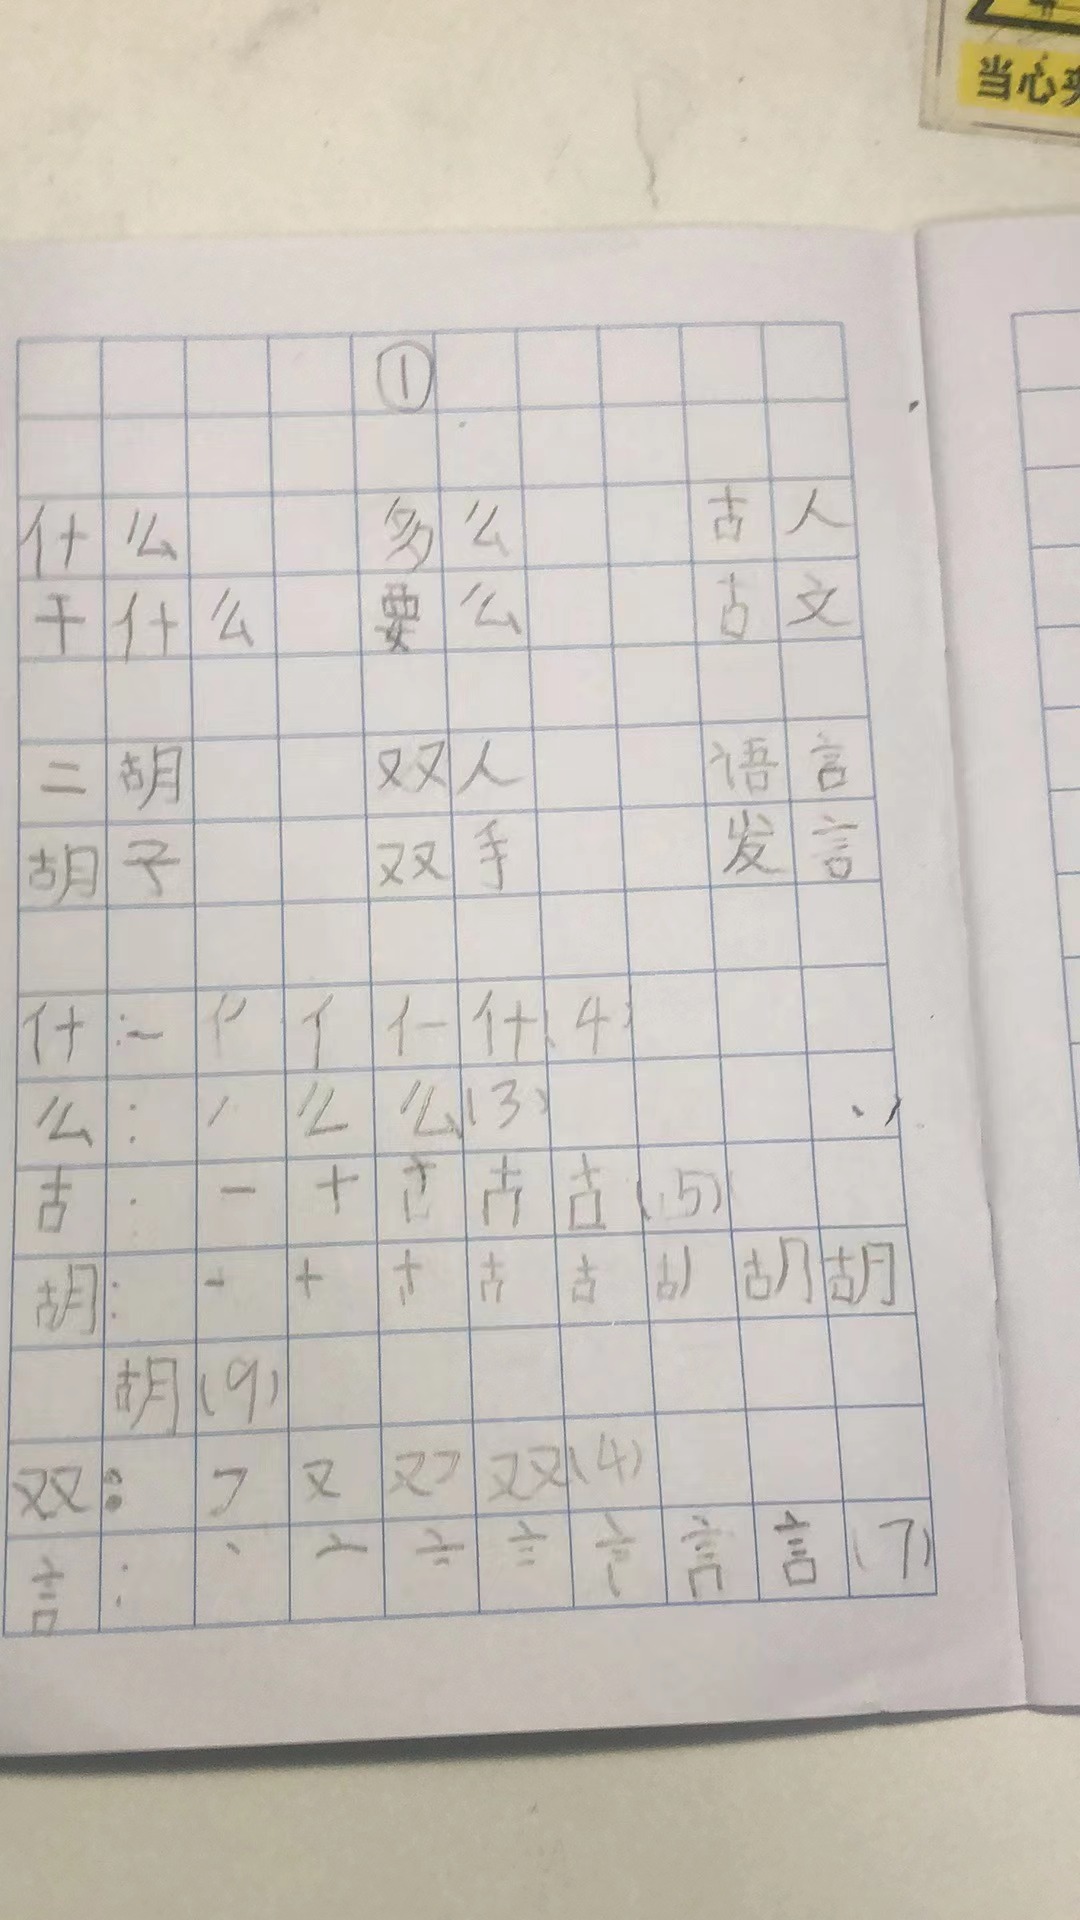 当心夹
①
什么 多么 古人
干什么 要么 古文
二胡 双人 语言
胡子 双手 发言
什：丿 亻 仁 什(4)
么：丿 么 么(3)
古：一 十 古 古 古(5)
胡：一 十 古 古 古 胡 胡
胡(9)
双：フ 又 双 双(4)
言：丶 亠 言 言 言(7)